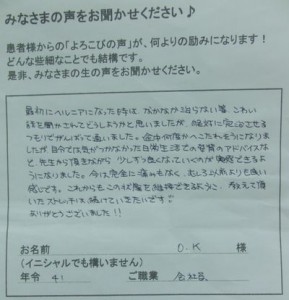 みなさまの声をお聞かせください♪
患者様からの「よろこびの声」が、何よりの励みになります！
どんな些細なことでも結構です。
是非、みなさまの生の声をお聞かせください。
最初にヘルニアになった時は、なかなか治らない等、こわい
話を聞かされてどうしようかと思いましたが、絶対に完治させる
つもりでがんばって通いました。途中何度かへこたれそうになりま
したが自分では気がつかなかった日常生活での姿勢のアドバイスな
ど、先生から頂きながら少しずつ良くなっていくのが実感できるよ
うになりました。今は完全に痛みもなく、むしろ以前よりも良い
感じです。これからもこの状態を維持できるように、教えて頂
いたストレッチは続けていきたいです。
ありがとうございました!!
お名前 O.K 様
(イニシャルでも構いません)
年令 41 ご職業 会社員